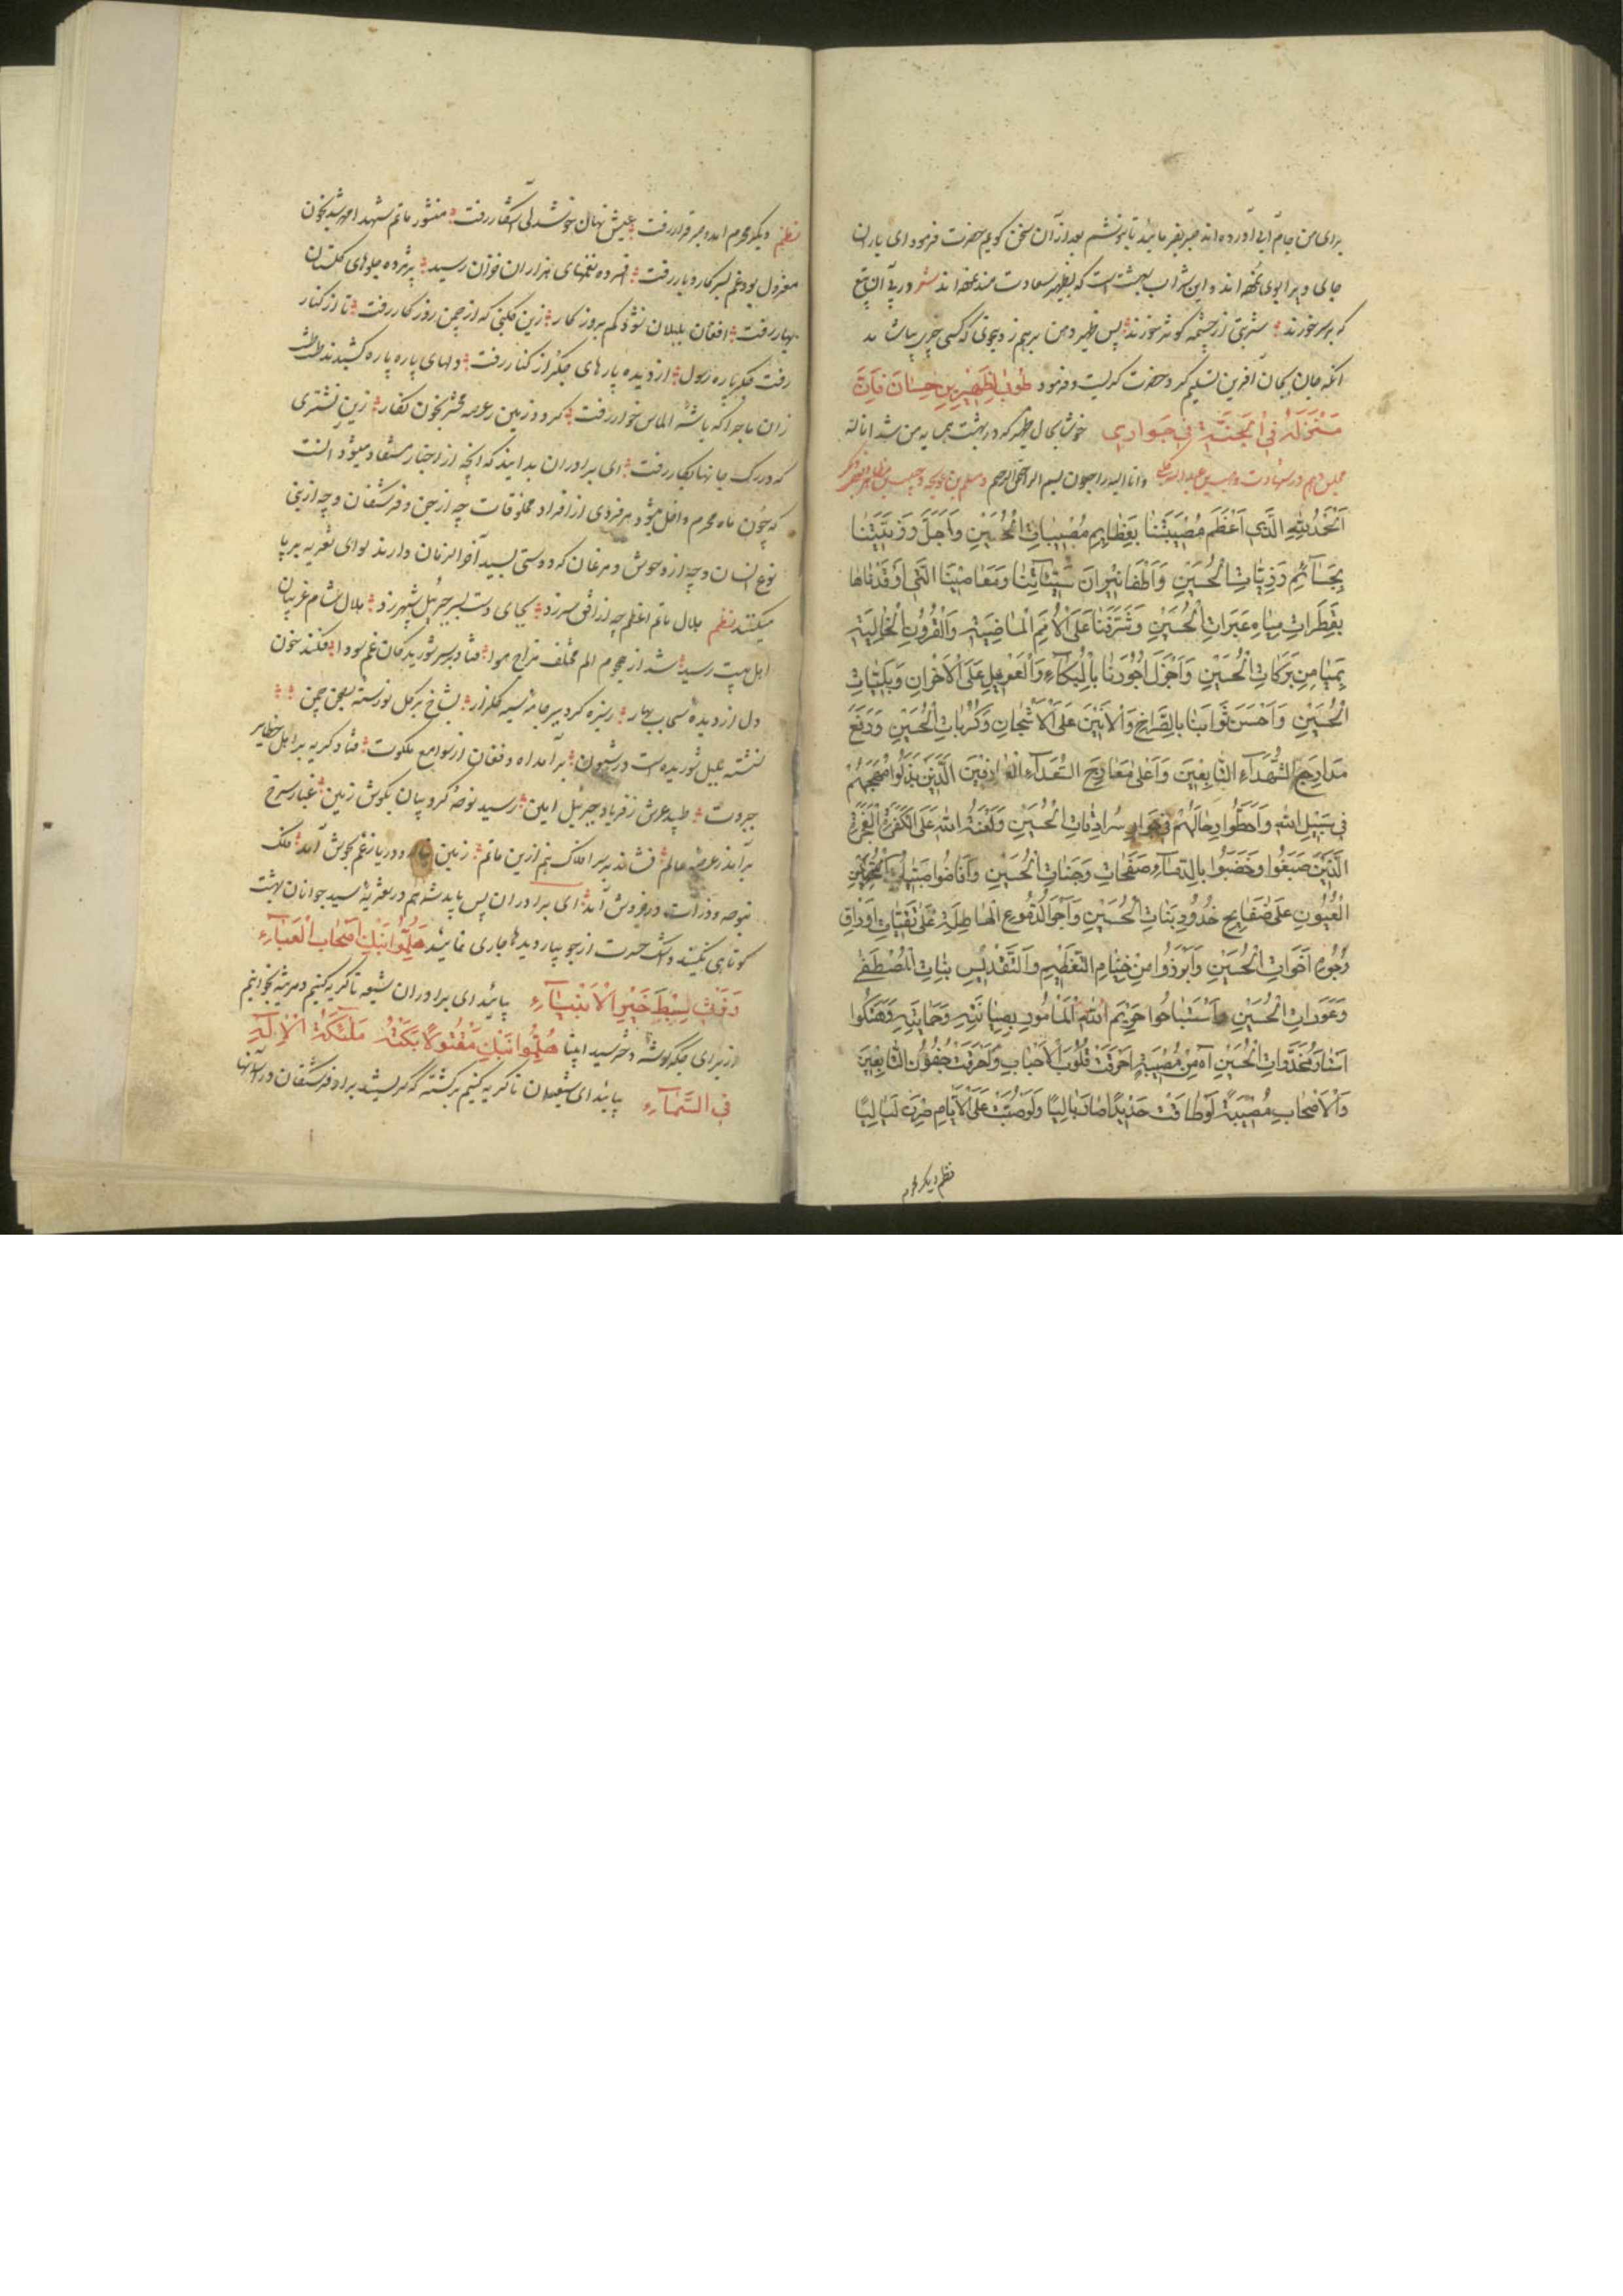 برای من جام آبی آورده اند صبر بفرمائید تا بنوشم بعد از آن سخن گویم حضرت فرمود ای یاران
جای ویرا بوی نموده اند و این شراب بهشت است که بظهیر سعادت مند نموده اند شعر در پی آن تیغ
که بر سر خورند شربتی از چشمهٔ کوثر خورند پس ظهیر دهن بر هم زد چنانکه کسی چیزی بیاشامد
آنگه جان بجان آفرین تسلیم کرد حضرت گریست و فرمود طُوبٰی لِظَهِیرِ بنِ حِسَانَ فَاِنَّ
مَنْزِلَهُ فِی الْجَنَّةِ فِی جِوَارِی خوشا بحال ظهیر که در بهشت همسایه من شد انا لله
وانا الیه راجعون بسم الله الرحمن الرحیم
اَلْحَمْدُ لِلّٰهِ الَّذِی اَعْظَمَ مُصِیْبَتَنَا بِعَظَایِمِ مُصِیْبَاتِ الْحُسَیْنِ وَاَجَلَّ رَزِیَّتَنَا
بِجَسَآئِمِ رَزِیَّاتِ الْحُسَیْنِ وَاَطْفَا نِیْرَانَ سَیِّئَاتِنَا وَمَعَاصِیْنَا الَّتِی اَوْقَدْنَاهَا
بِقَطَرَاتِ مِیَاهِ عَبَرَاتِ الْحُسَیْنِ وَشَرَّفَنَا عَلَی الْاُمَمِ الْمَاضِیَةِ وَالْقُرُوْنِ الْخَالِیَةِ
بِمَیَامِنِ بَرَکَاتِ الْحُسَیْنِ وَاَجْزَلَ اُجُوْرَنَا بِالْبُکَآءِ وَالْعَوِیْلِ عَلَی الْاَحْزَانِ وَبَلِیَّاتِ
الْحُسَیْنِ وَاَحْسَنَ ثَوَابَنَا بِالصُّرَاخِ وَالْاَنِیْنَ عَلَی الْاَشْجَانِ وَکُرُبَاتِ الْحُسَیْنِ وَرَفَعَ
مَدَارِجَ الشُّهَدَآءِ التَّابِعِیْنَ وَاَعْلٰی مَعَارِجَ السُّعَدَآءِ الَّذِیْنَ بَذَلُوْا مُهَجَهُمْ
فِی سَبِیْلِ اللّٰهِ وَاَحَطُّوْا رِحَالَهُمْ فِی جِوَارِ سُرَادِقَاتِ الْحُسَیْنِ وَلَعْنَةُ اللّٰهِ عَلَی الْکَفَرَةِ الْفَجَرَةِ
الَّذِیْنَ صَبَغُوْا وَخَضَبُوْا بِالدِّمَآءِ صَفَحَاتِ وَجَنَاتِ الْحُسَیْنِ وَاَفَاضُوْا
الْعُیُوْنِ عَلٰی صَفَایِحِ خُدُوْدِ بَنَاتِ الْحُسَیْنِ وَاَجْرَوْا الدُّمُوْعَ الْهَاطِلَةِ عَلٰی اَوْرَاقِ
وُجُوْهِ اَخَوَاتِ الْحُسَیْنِ وَاَبْرَزُوْا مِنْ خِیَامِ التَّعْظِیْمِ وَالتَّقْدِیْسِ بَنَاتِ الْمُصْطَفٰی
وَعَوْرَاتِ الْحُسَیْنِ وَاسْتَبَاحُوْا حَرِیْمَ اللّٰهِ الْمَاْمُوْرِ بِصِیَانَتِهِ وَحِمَایَتِهِ وَهَتَکُوْا
اَسْتَارَ مُخَدَّرَاتِ الْحُسَیْنِ آه مِنْ مُصِیْبَةٍ اَحْرَقَتْ قُلُوْبَ الْاَحْبَابِ
وَالْاَصْحَابِ مُصِیْبَةٌ لَوْ وَلَوْ صُبَّتْ عَلَی الْاَیَّامِ صِرْنَ لَیَالِیًا
نظم دیگر محرم
نظم دیگر محرم آمد و صبر و قرار رفت عیش نهان خوشدلی آشکار رفت منشور ماتم شهدا مهر شد بخون
معزول بود غم بسر کار و بار رفت افسرده نغمهای هزاران خزان رسید پژمرده جلوهای گلستان
بهار رفت افغان بلبلان نشود کم بروزگار زین گلبنی که از چمن روزگار رفت تا از کنار
رفت جگر پاره رسول از دیده پارهای جگر از کنار رفت دلهای پاره پاره کشیدند
زان ماجرا که باشه الماس خوار رفت گردد زمین عرصه محشر بخون نگار زین نشتری
که در رگ جانها بکار رفت ای برادران بدانید که آنچه از اخبار مستفاد میشود آنست
که چون ماه محرم داخل میشود هر فردی از افراد مخلوقات چه از جن و فرشتگان و چه از بنی
نوع انسان و چه از وحوش و مرغان که دوستی بسید آخر الزمان دارند لوای تعزیه برپا
میکنند نظم هلال ماتم اعظم چه از افق سر زد بجای دست بسر جبرئیل شهپر زد هلال شام غریبان
اهل بیت رسید شد از هجوم الم مختلف مزاج هوا فتاد بر سر شوریدگان غم سودا فکند خون
دل از دیده سحاب بهار ریزه کرد بپیر جامه نسیه گلزار بشاخ هر گل نورسته بصحن چمن
نشسته بلبل شوریده است در شیون برآمد آه و فغان از صوامع ملکوت فتاد گریه بر اهل حظایر
جبروت طپید عرش ز فریاد جبرئیل امین رسید نوحهٔ کروبیان بگوش زمین غبار سرخ
برآمد ز عرصه عالم فشاند بر سر افلاک هم ازین ماتم زمین و دریا ز غم بجوش آمد فلک
بنوحه و ذرات در خروش آمد ای برادران پس باید شما هم در تعزیهٔ سید جوانان بهشت
کوتاهی نکنید و اشک حسرت از جویبار دیدها جاری نمائید هَلِمُّوْا نَبْکِ اَصْحَابَ الْعَبَآءِ
وَنَرْثِ سِبْطَ خَیْرِ الْاَنْبِیَآءِ بیائید ای برادران شیعه تا گریه کنیم و مرثیه بخوانیم
از برای جگر گوشه دختر سید انبیا هَلِمُّوْا نَبْکِ مَقْتُوْلًا بَکَتْهُ مَلٰئِکَةُ الْاِلٰهِ
فِی السَّمَآءِ بیائید ای شیعیان تا گریه کنیم بر کشته که گریستند بر او فرشتگان در آسمانها